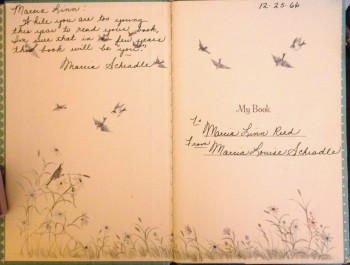 Marcia Linn:
While you are too young
this year to read your book,
I'm sure that in a few years
this book will be "you".
Marcia Schiadle
12-25-66
My Book
To Marcia Linn Reed
From Marcia Louise Schiadle